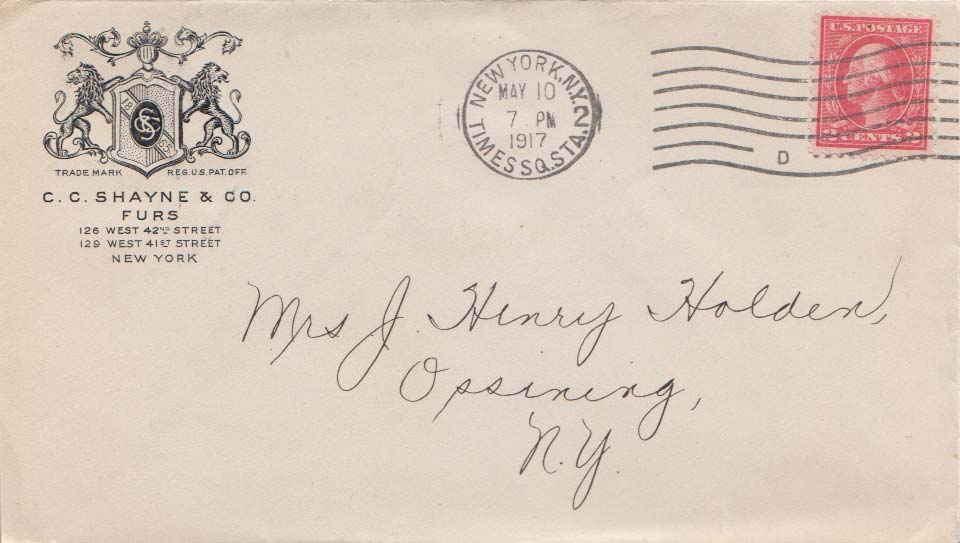 18 CCS 93
TRADE MARK REG. U.S. PAT. OFF.
C. C. SHAYNE & CO.
FURS
126 WEST 42ND STREET
129 WEST 41ST STREET
NEW YORK
NEW YORK, N.Y. 2
MAY 10
7 PM
1917
TIMES SQ. STA.
D
U.S. POSTAGE
2 CENTS 2
Mrs J. Henry Holden,
Ossining,
N.Y.